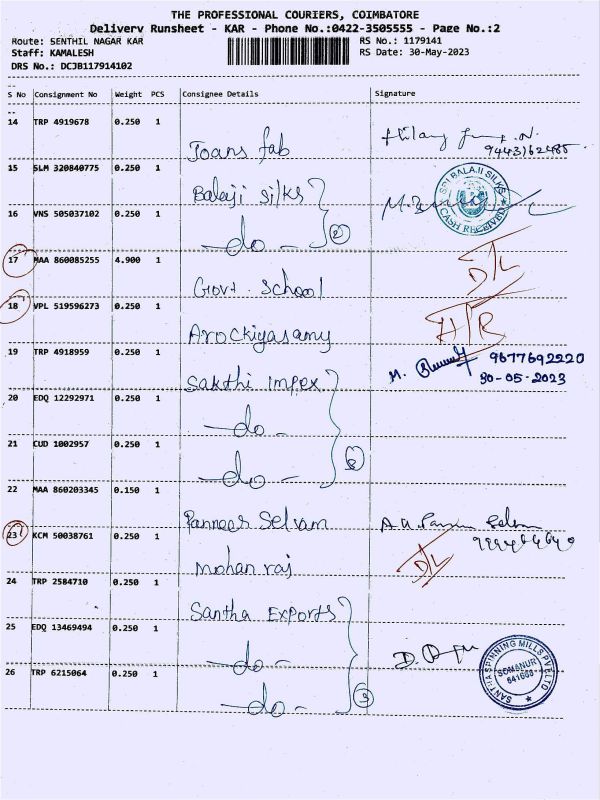 THE PROFESSIONAL COURIERS, COIMBATORE
Delivery Runsheet - KAR - Phone No.:0422-3505555 - Page No.:2
Route: SENTHIL NAGAR KAR
RS No.: 1179141
Staff: KAMALESH
RS Date: 30-May-2023
DRS No.: DCJB117914102
S No Consignment No Weight PCS Consignee Details Signature
14 TRP 4919678 0.250 1
Joans fab
15 SLM 320840775 0.250 1
Balaji silks
SRI BALAJI SILKS
CASH RECEIVED
16 VNS 505037102 0.250 1
- do -
2
17 MAA 860085255 4.900 1
D/L
Govt. School
18 VPL 519596273 0.250 1
Arockiyasamy
19 TRP 4918959 0.250 1
M. 9677692220
30-05-2023
Sakthi impex
20 EDQ 12292971 0.250 1
- do -
21 CUD 1002957 0.250 1
- do -
22 MAA 860203345 0.150 1
Panneer Selvam
23 KCM 50038761 0.250 1
D/L
Mohan raj
24 TRP 2584710 0.250 1
Santha Exports
25 EDQ 13469494 0.250 1
- do -
SANTHA SPINNING MILLS PVT LTD
SOMANUR
641668
26 TRP 6215064 0.250 1
- do -
3